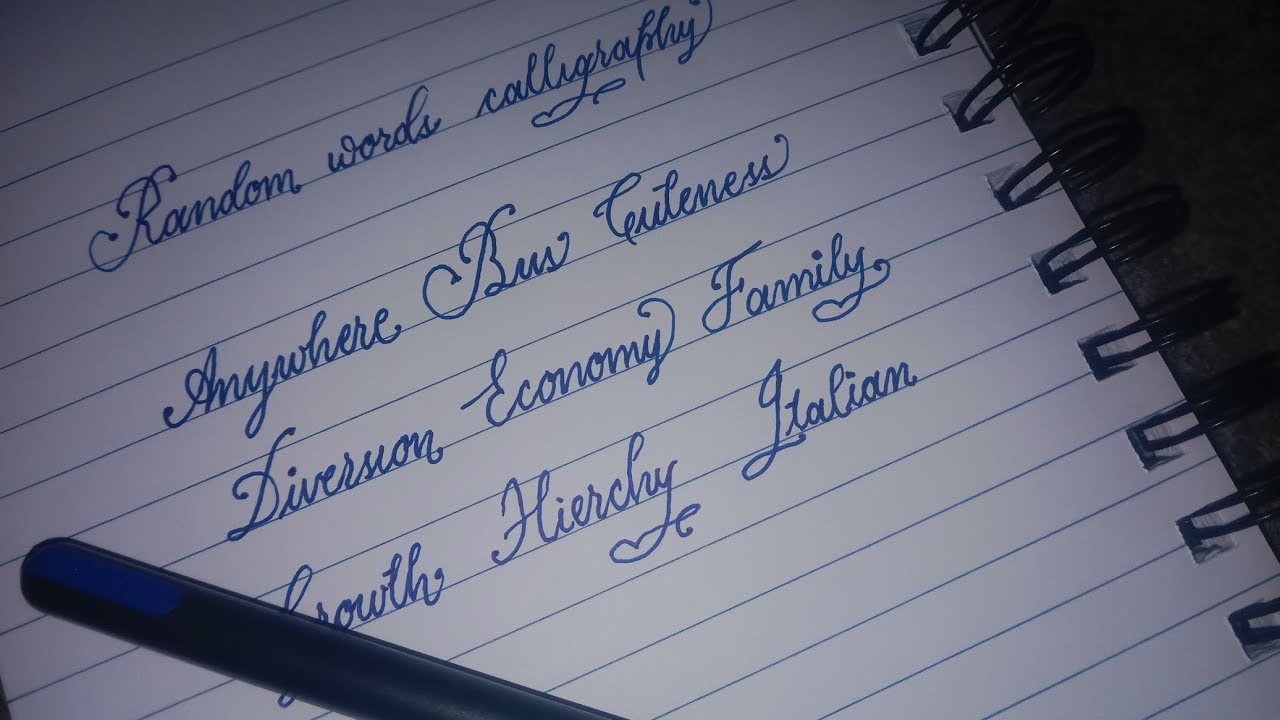 Random words calligraphy
Anywhere Bus Cuteness
Diversion Economy Family
Growth Hierchy Italian